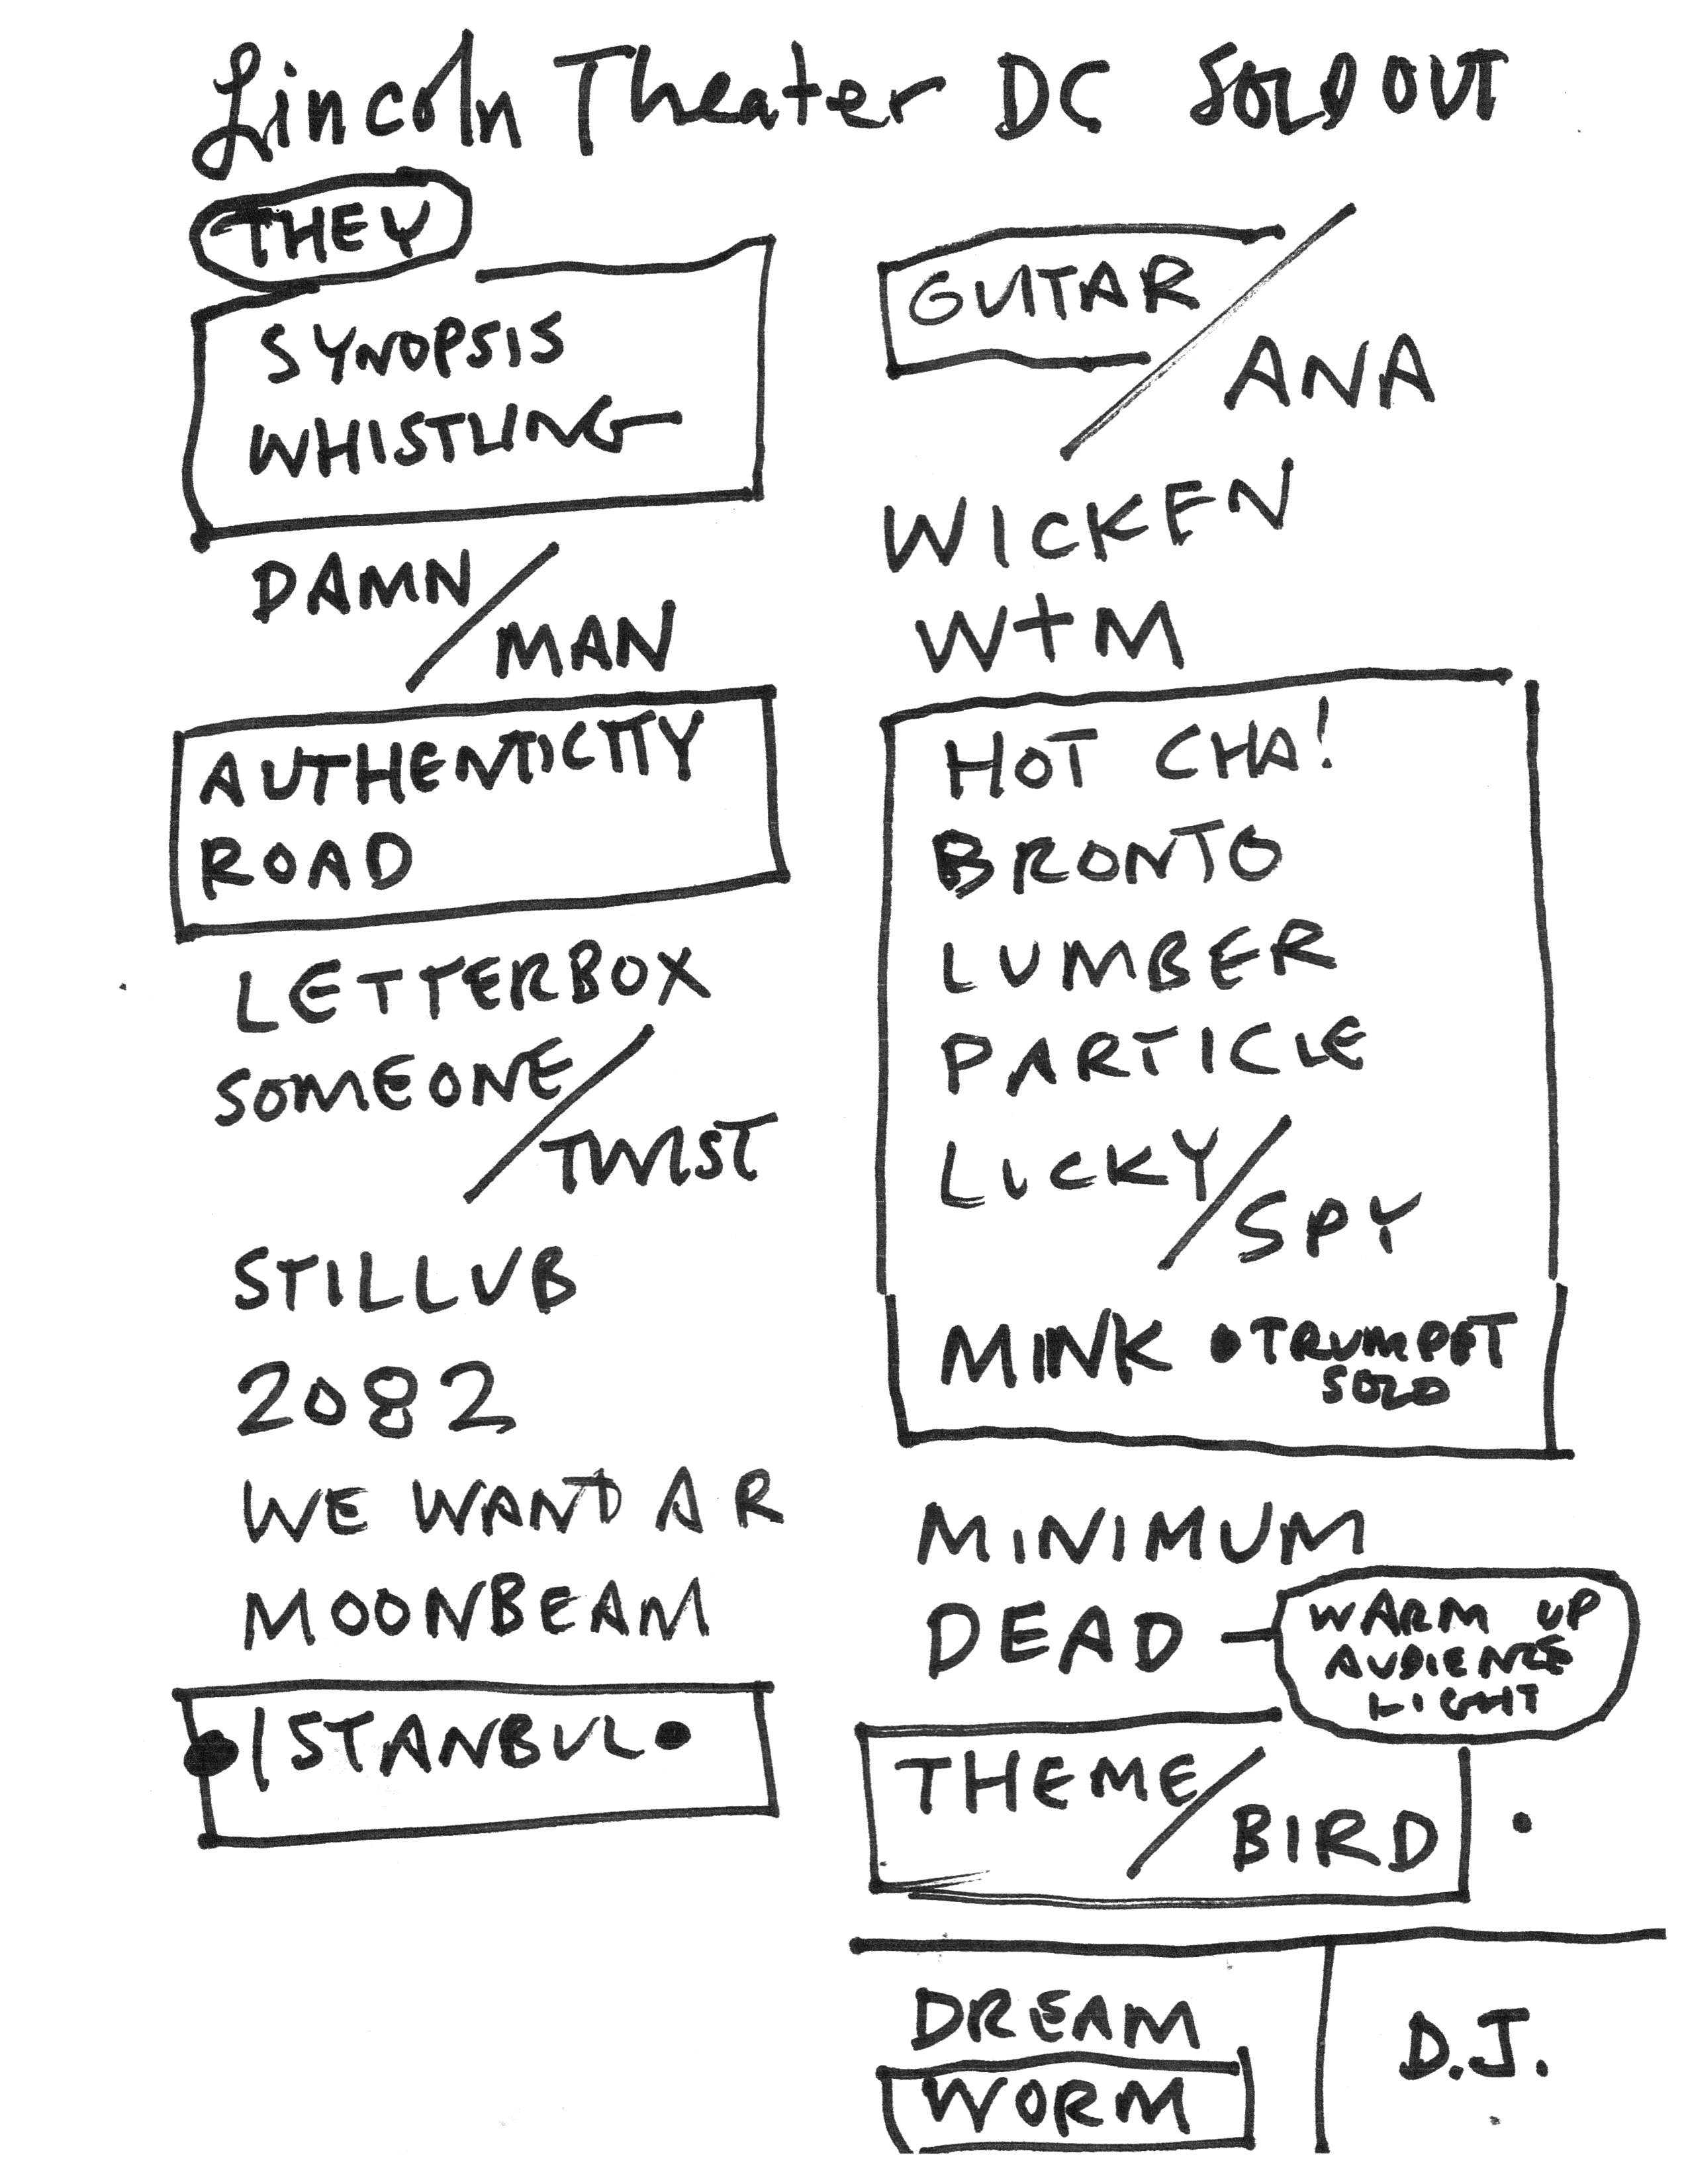 Lincoln Theater DC SOLD OUT
THEY
SYNOPSIS
WHISTLING
DAMN/
MAN
AUTHENTICITY
ROAD
LETTERBOX
SOMEONE/
TWIST
STILLUB
2082
WE WANT A R
MOONBEAM
•ISTANBUL•
GUITAR/
ANA
WICKEN
W+M
HOT CHA!
BRONTO
LUMBER
PARTICLE
LICKY/
SPY
MINK •TRUMPET
SOLO
MINIMUM
DEAD –
WARM UP
AUDIENCE
LIGHT
THEME/
BIRD •
DREAM
WORM
D.J.